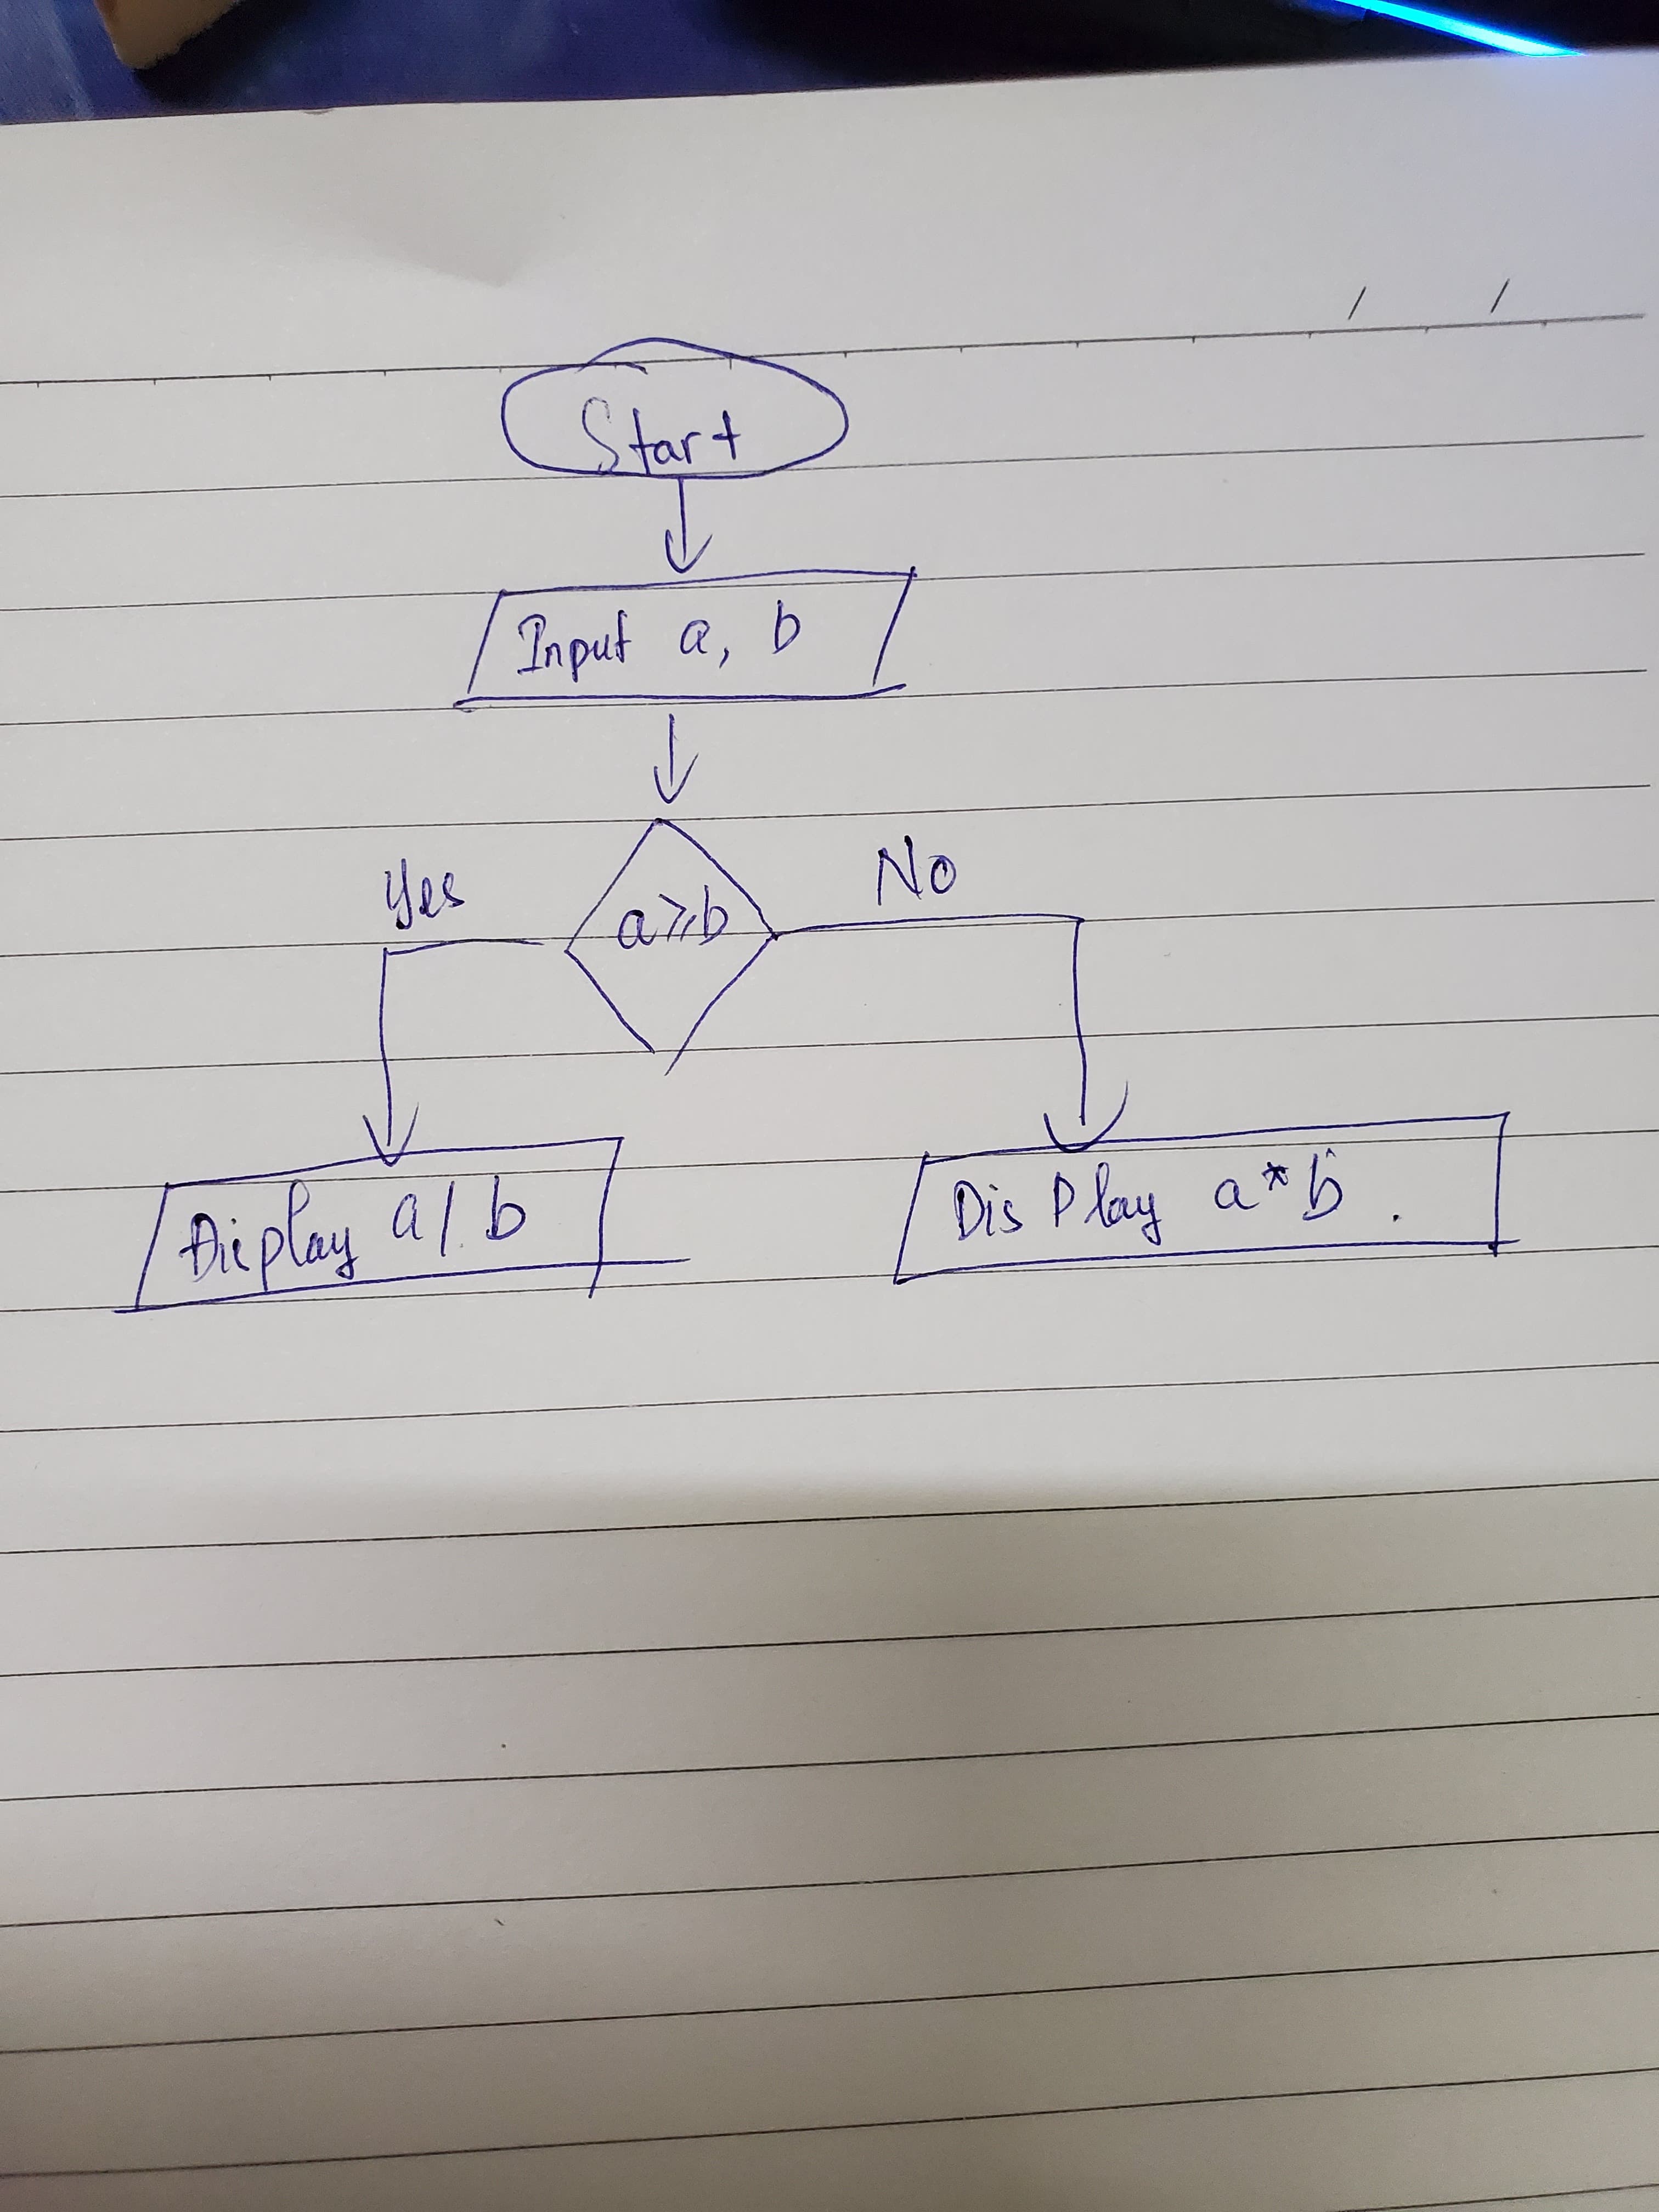 Start
Input a, b
Yes
No
a⩾b
Display a/b
DisPlay a*b.